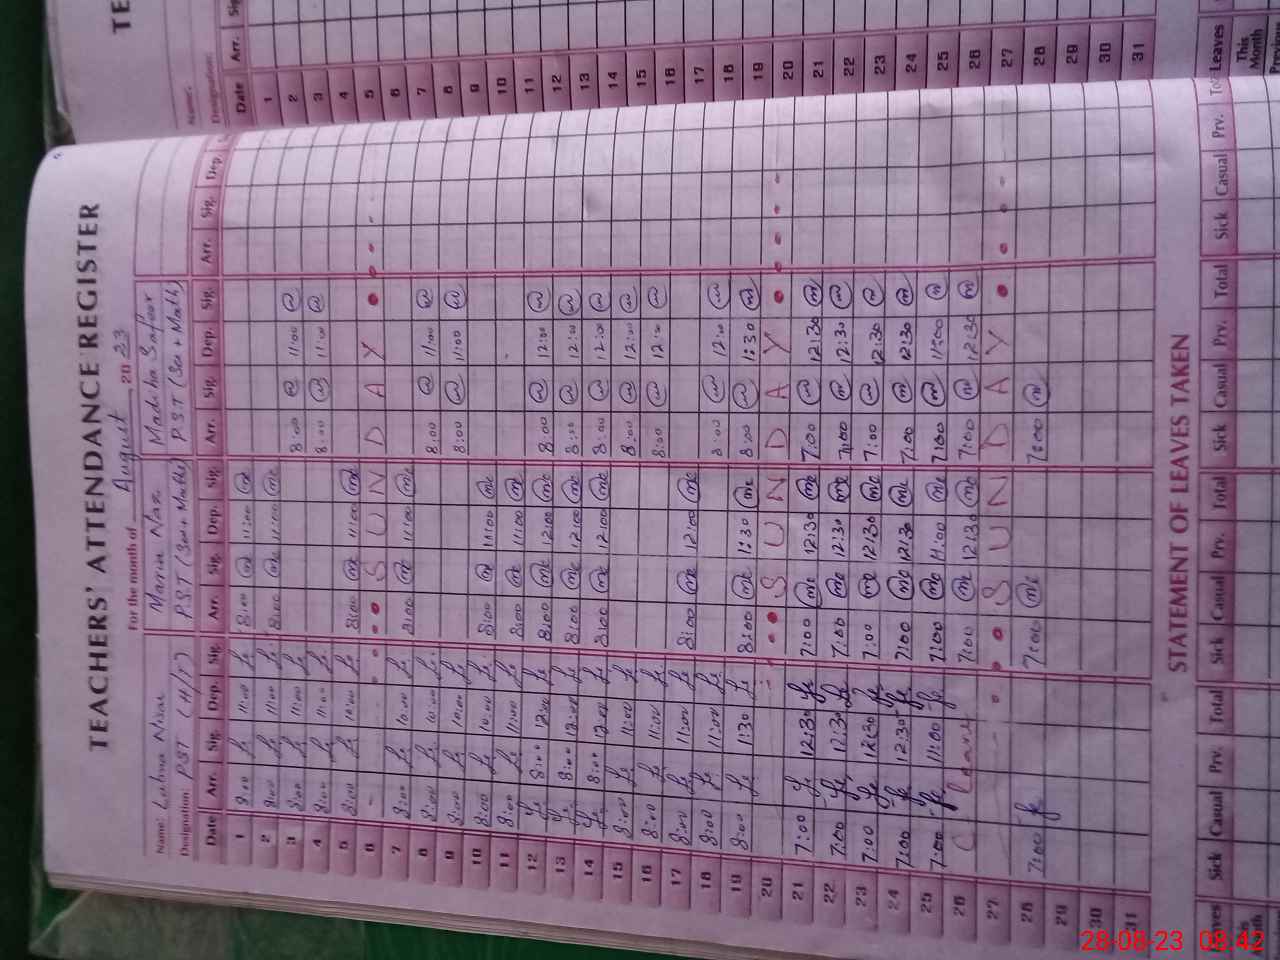 TEACHERS' ATTENDANCE REGISTER
For the month of August 2023
Name: Lubna Nisar Maria Naz Madiha Safeer
Designation: PST (H/T) P.S.T (Sci + Math) P.S.T (Sci + Math)
Date Arr. Sig. Dep. Sig. Arr. Sig. Dep. Sig. Arr. Sig. Dep. Sig. Arr. Sig. Dep.
1 8:00 11:00 8:00 11:00
2 8:00 11:00 8:00 11:00
3 8:00 11:00 8:00 11:00
4 8:00 11:00 8:00 11:00
5 8:00 10:00 8:00 11:00
6 SUN DAY
7 8:00 10:00 8:00 11:00
8 8:00 10:00 8:00 11:00
9 8:00 10:00 8:00 11:00
10 8:00 10:00 8:00 11:00
11 8:00 11:00 8:00 11:00
12 8:00 12:00 8:00 12:00 8:00 12:00
13 8:00 12:00 8:00 12:00 8:00 12:00
14 8:00 12:00 8:00 12:00 8:00 12:00
15 8:00 11:00 8:00 12:00
16 8:00 11:00 8:00 12:00
17 8:00 11:00 8:00 12:00
18 8:00 11:00 8:00 12:00
19 8:00 11:30 8:00 11:30 8:00 11:30
20 SUN DAY
21 7:00 12:30 7:00 12:30 7:00 12:30
22 7:00 12:30 7:00 12:30 7:00 12:30
23 7:00 12:30 7:00 12:30 7:00 12:30
24 7:00 12:30 7:00 12:30 7:00 12:30
25 7:00 11:00 7:00 11:00 7:00 11:00
26 C Leave 7:00 12:30 7:00 12:30
27 SUN DAY
28 7:00 7:00 7:00
29
30
31
STATEMENT OF LEAVES TAKEN
Leaves Sick Casual Prv. Total Sick Casual Prv. Total Sick Casual Prv. Total Sick Casual Prv.
This
Month
Name:
Designation:
Date 1 2 3 4 5 6 7 8 9 10 11 12 13 14 15 16 17 18 19 20 21 22 23 24 25 26 27 28 29 30 31
Arr.
Sig.
TE
Leaves
This
Month
28-08-23 08:42